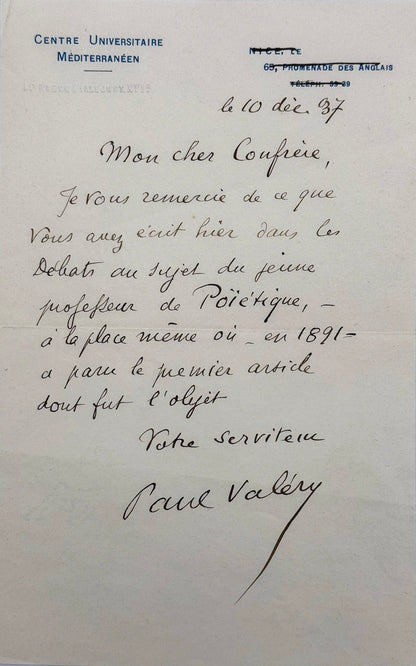 CENTRE UNIVERSITAIRE
MÉDITERRANÉEN
NICE, LE
65, PROMENADE DES ANGLAIS
TÉLÉPH.
le 10 déc. 37
Mon cher Confrère,
Je vous remercie de ce que
vous avez écrit hier dans les
Débats au sujet du jeune
professeur de Poïétique, –
à la place même où – en 1891 –
a paru le premier article
dont fut l'objet
Votre serviteur
Paul Valéry